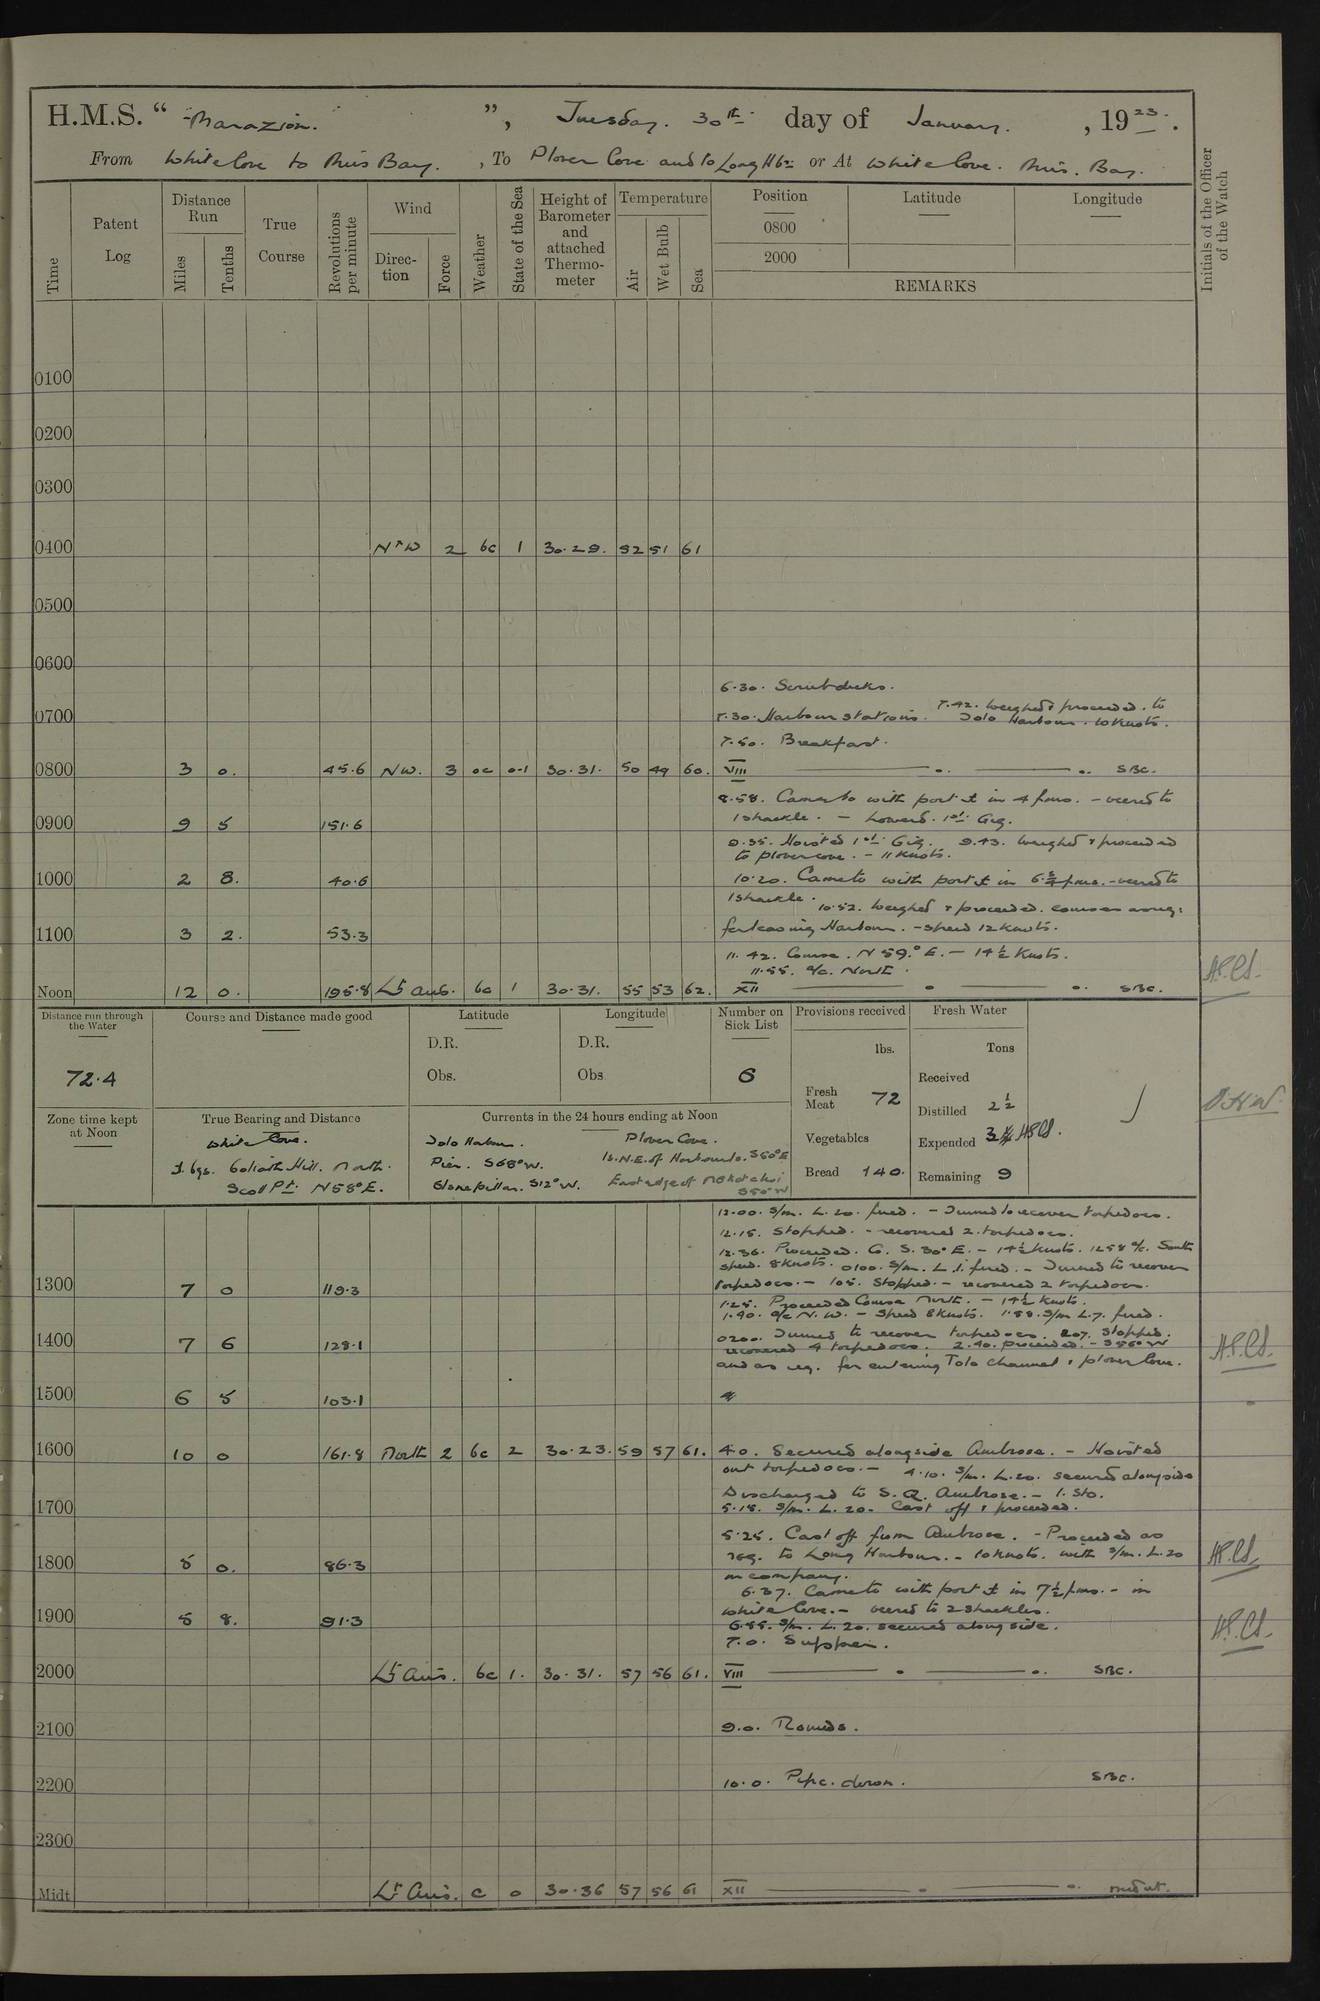 H.M.S. “ Marazion. ”, Tuesday. 30th day of January. , 1923.
From White Cove to Mirs Bay. , To Plover Cove and to Long Hbr or At White Cove. Mirs. Bay.
Time
Patent Log
Distance Run
Miles
Tenths
True Course
Revolutions per minute
Wind
Direction
Force
Weather
State of the Sea
Height of Barometer and attached Thermometer
Temperature
Air
Wet Bulb
Sea
Position
0800
2000
Latitude
Longitude
REMARKS
Initials of the Officer of the Watch
0100
0200
0300
0400 N'W 2 bc 1 30.29. 52 51 61
0500
0600
6.30. Scrub decks.
0700 7.30. Harbour stations. 7.42. Weighed & proceeded. to
Tolo Harbour. 10 Knots.
7.50. Breakfast.
0800 3 0. 45.6 NW. 3 oc 0-1 30.31. 50 49 60. VIII SBC.
8.58. Came to with port in 4 fms. - veered to
0900 9 5 151.6 1 shackle. - Lowered. 1st. Gig.
9.35. Hoisted 1st. Gig. 9.43. Weighed & proceeded
to plover cove. - 11 Knots.
1000 2 8. 40.6 10.20. Came to with port in 6 3/4 fms. - veered to
1 shackle. 10.52. Weighed & proceeded. courses as req:
1100 3 2. 53.3 for leaving Harbour. - speed 12 Knots.
11.42. Course. N 59.° E. - 14 1/2 Knots.
11.55. a/c. North.
Noon 12 0. 195.8 Lt airs. bc 1 30.31. 55 53 62. XII SBC.
Distance run through the Water
72.4
Course and Distance made good
Latitude
D.R.
Obs.
Longitude
D.R.
Obs
Number on Sick List
6
Provisions received
lbs.
Fresh Meat 72
Vegetables
Bread 140.
Fresh Water
Tons
Received
Distilled 2 1/2
Expended 3
Remaining 9
Zone time kept at Noon
True Bearing and Distance
White Cove.
bgs. Goliath Hill. North.
Scott Pt. N 58° E.
Currents in the 24 hours ending at Noon
Tolo Harbour.
Pier. S 68° W.
Stone pillar. S 12° W.
Plover Cove.
Is. N.E. of Harbour Is. S50°E
East edge of
S50°W
12.00. S/m. L. 20. fired. - Turned to recover torpedoes.
12.15. Stopped. - recovered 2 torpedoes.
12.36. Proceeded. Co. S. 30° E. - 14 1/2 Knots. 1258 a/c. South
speed. 8 Knots. 0100. S/m. L.1. fired. - Turned to recover
1300 7 0 119.3 torpedoes. - 105. Stopped. - recovered 2 torpedoes.
1.25. Proceeded Course North. - 14 1/2 Knots.
1.40. a/c N. W. - speed 8 Knots. 1.58. S/m L.7. fired.
1400 7 6 128.1 0200. Turned to recover torpedoes. 207. Stopped.
recovered 4 torpedoes. 2.40. proceeded. - S56°W
and as req. for entering Tolo Channel & plover Cove.
1500 6 5 103.1
1600 10 0 161.8 North 2 bc 2 30.23. 59 57 61. 4.0. Secured alongside Ambrose. - Hoisted
out torpedoes. - 4.10. S/m. L.20. secured alongside
Discharged to S. Q. Ambrose. - 1. Sto.
1700 5.15. S/m. L. 20. Cast off & proceeded.
5.25. Cast off from Ambrose. - Proceeded as
1800 5 0. 86.3 req. to Long Harbour. - 10 Knots. with S/m. L.20
in company.
6.37. Came to with port in 7 1/2 fms. - in
1900 5 8. 91.3 White Cove. - veered to 2 shackles.
6.55. S/m. L. 20. secured along side.
7.0. Supper.
2000 Lt airs. bc 1. 30.31. 57 56 61. VIII SBC.
2100 9.0. Rounds.
2200 10.0. Pipe. down. SBC.
2300
Midt. Lt Airs. c 0 30.36 57 56 61 XII